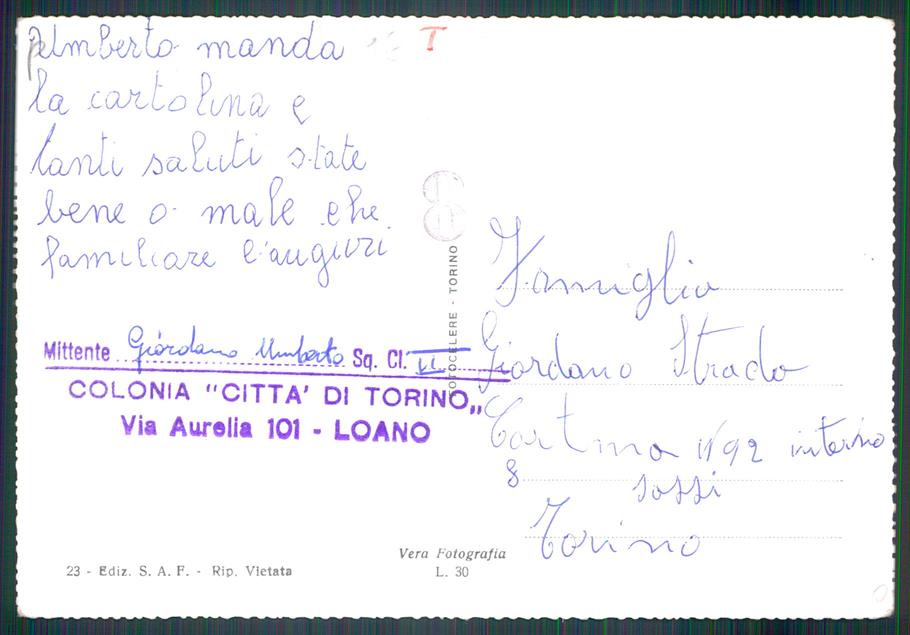 Umberto manda
la cartolina e
tanti saluti state
bene o male che
familiare l'auguri
T
Mittente Giordano Umberto Sq. Cl. VI
COLONIA "CITTA' DI TORINO„
Via Aurelia 101 - LOANO
FOTOCELERE - TORINO
Famiglia
Giordano Strada
N 92 interno
8
Torino
23 - Ediz. S. A. F. - Rip. Vietata
Vera Fotografia
L. 30